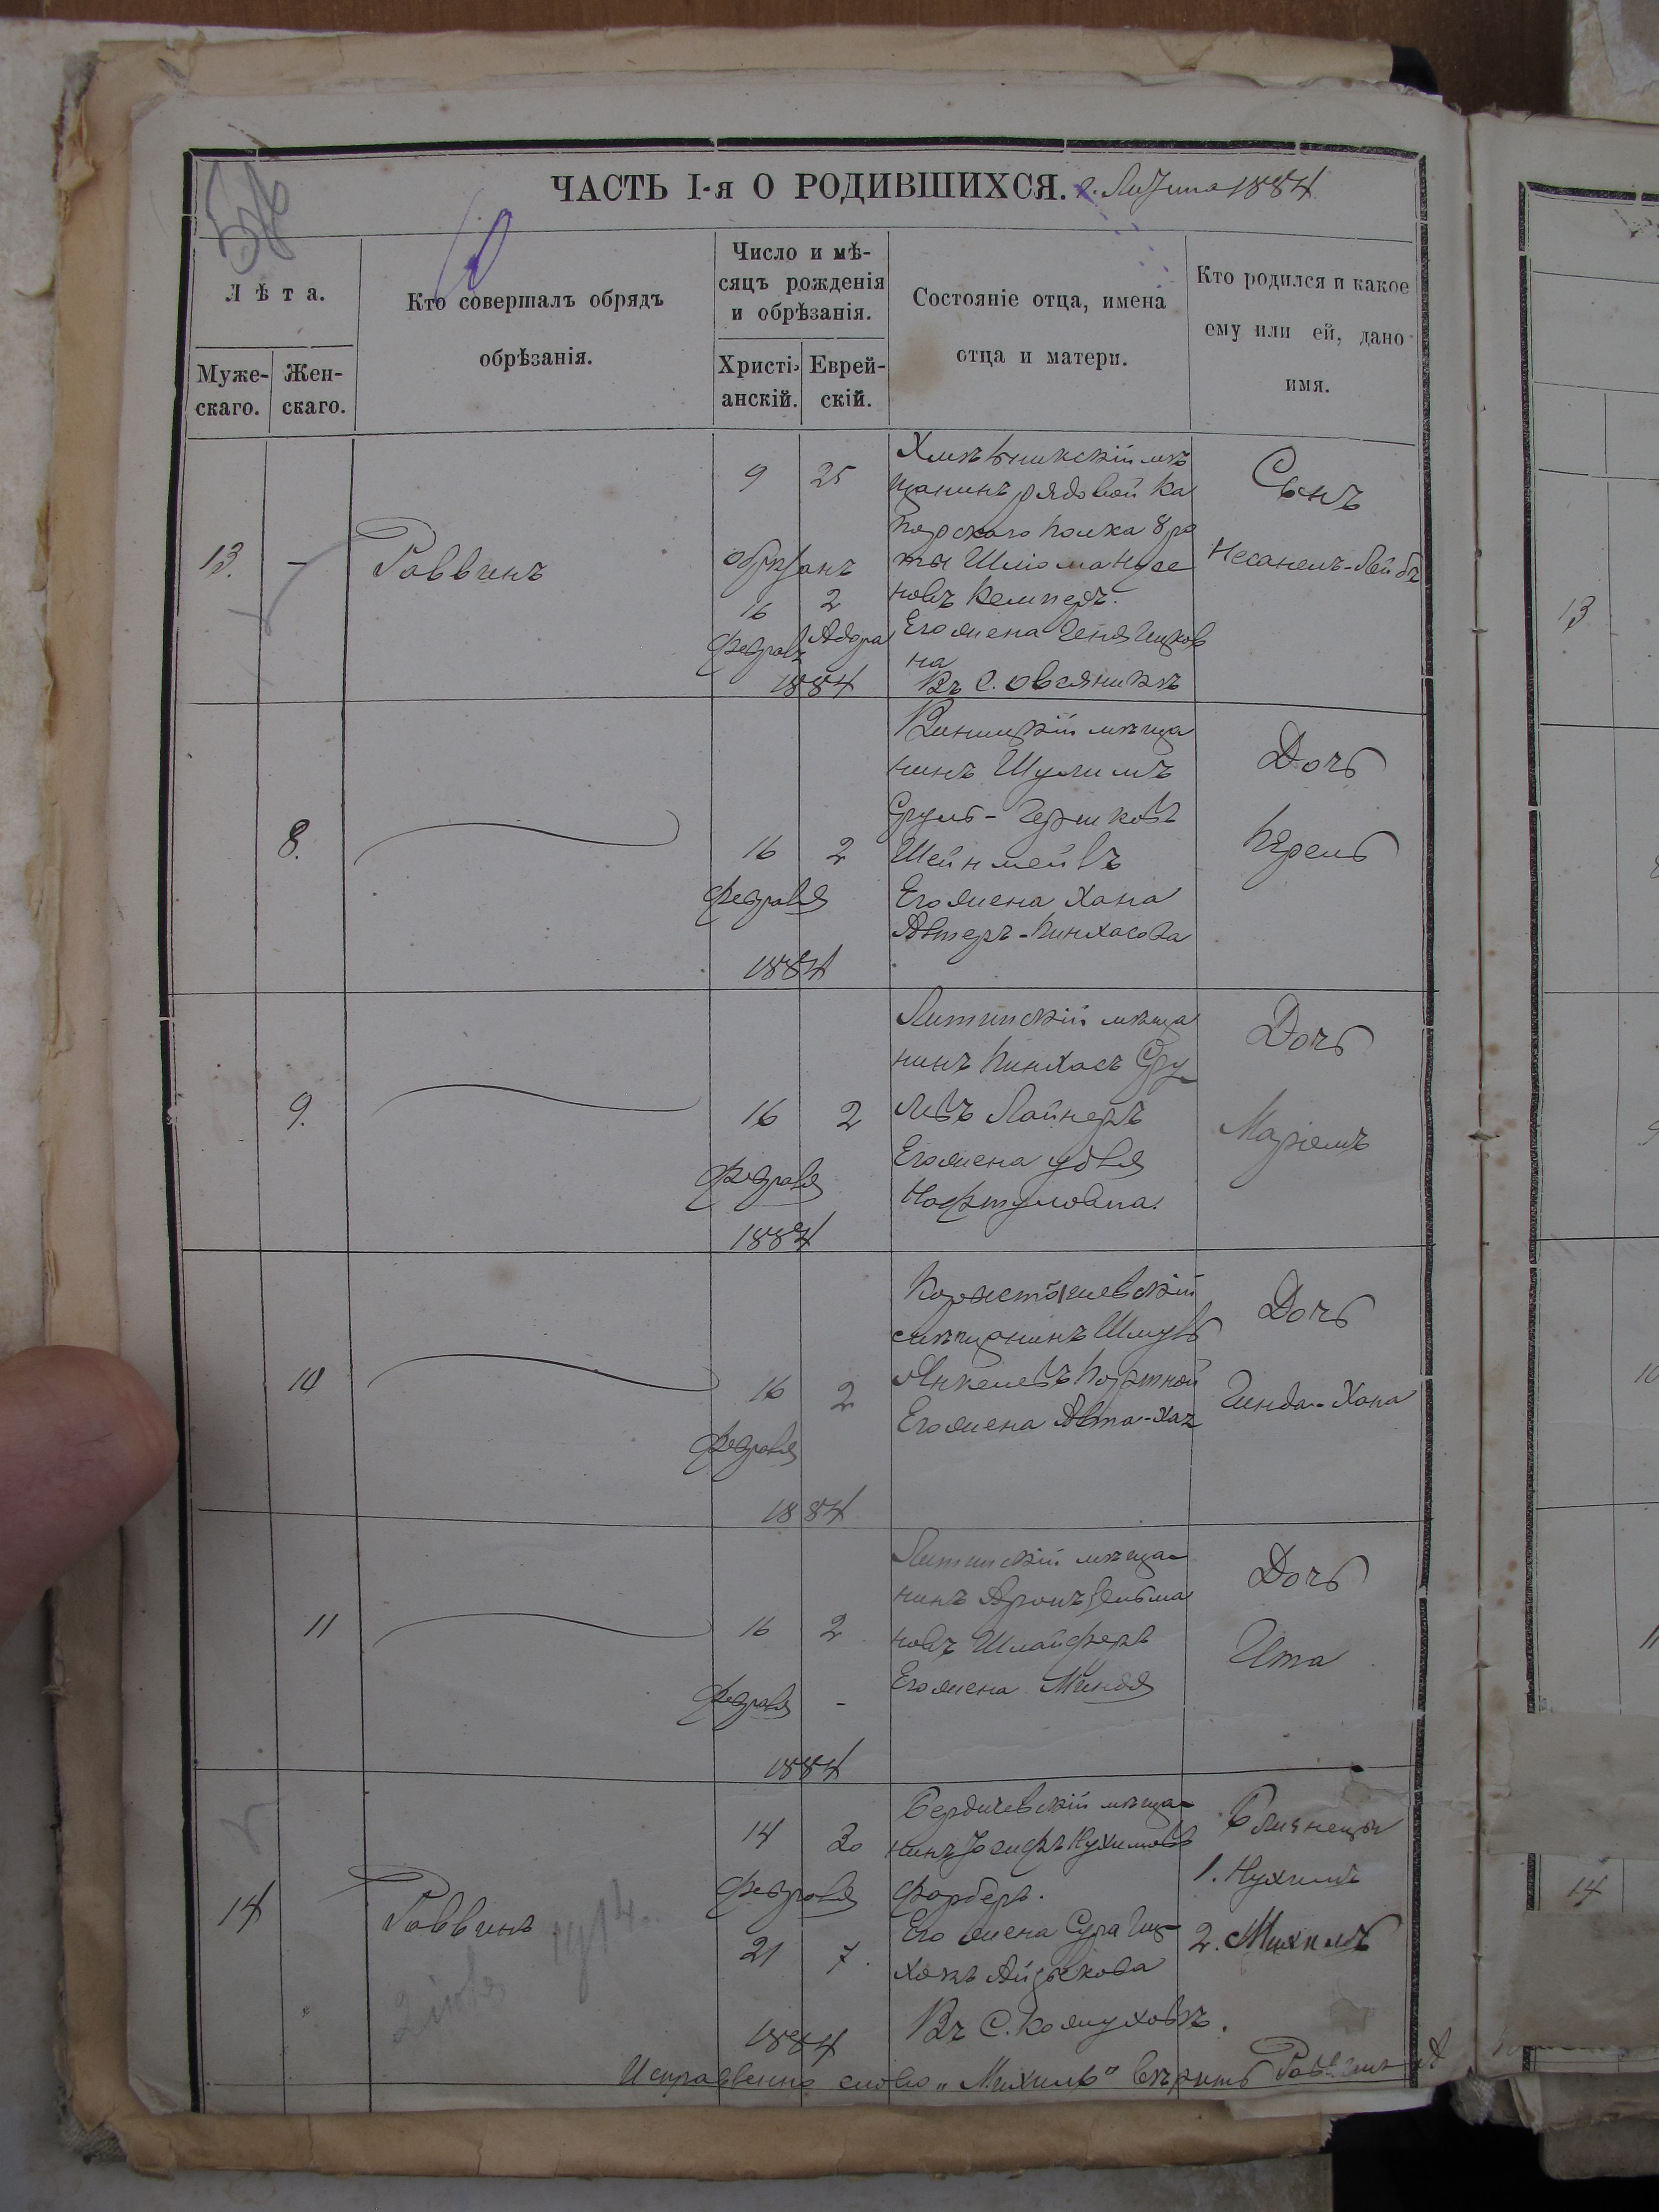 ЧАСТЬ I-я О РОДИВШИХСЯ. г. Литина 1884
Лѣта.
Муже-
скаго.
Жен-
скаго.
Кто совершалъ обрядъ
обрѣзанія.
Число и мѣ-
сяцъ рожденія
и обрѣзанія.
Христі-
анскій.
Еврей-
скій.
Состояніе отца, имена
отца и матери.
Кто родился и какое
ему или ей, дано
имя.
13.
—
Раввинъ
9 25
обрѣзанъ
16 2
Февраля Адора
1884
Хмѣльникскій мѣ
щанинъ рядовой Ка
порскаго полка 8 ро
ты Шліома Нусе
новъ Кемперъ.
Его жена Геня Ицков
на
Въ с. Овсяникъ
Сынъ
Несанелъ-Лейбъ
8.
16 2
Февраля
1884
Виницкій мѣща
нинъ Шулимъ
Сруль-Гершковъ
Его жена Хана
Пинхасова
Дочь
Перель
9.
16 2
Февраля
1884
Литинскій мѣща
нинъ Пинхасъ Сру
левъ Лайнеръ
Его жена Удля
Нафтуловна.
Дочь
Маріемъ
10
16 2
Февраля
1884
мѣщанинъ Шмуль
Янкелевъ Портной
Его жена
Дочь
Гинда-Хана
11
16 2
Февраля -
1884
Литинскій мѣща-
нинъ Аронъ Зельма
новъ Шлайферъ
Его жена Миндя
Дочь
Ита
14
Раввинъ
14 30
Февраля
21 7.
1884
Бердичевскій мѣща-
нинъ Іосифъ Нухимовъ
Фарберъ.
Его жена Сура Иц-
Въ с. Кожуховъ.
Близнецы
1. Нухимъ
2. Михиль
Исправленно слово „Михиль" вѣрить Раввинъ
13
14